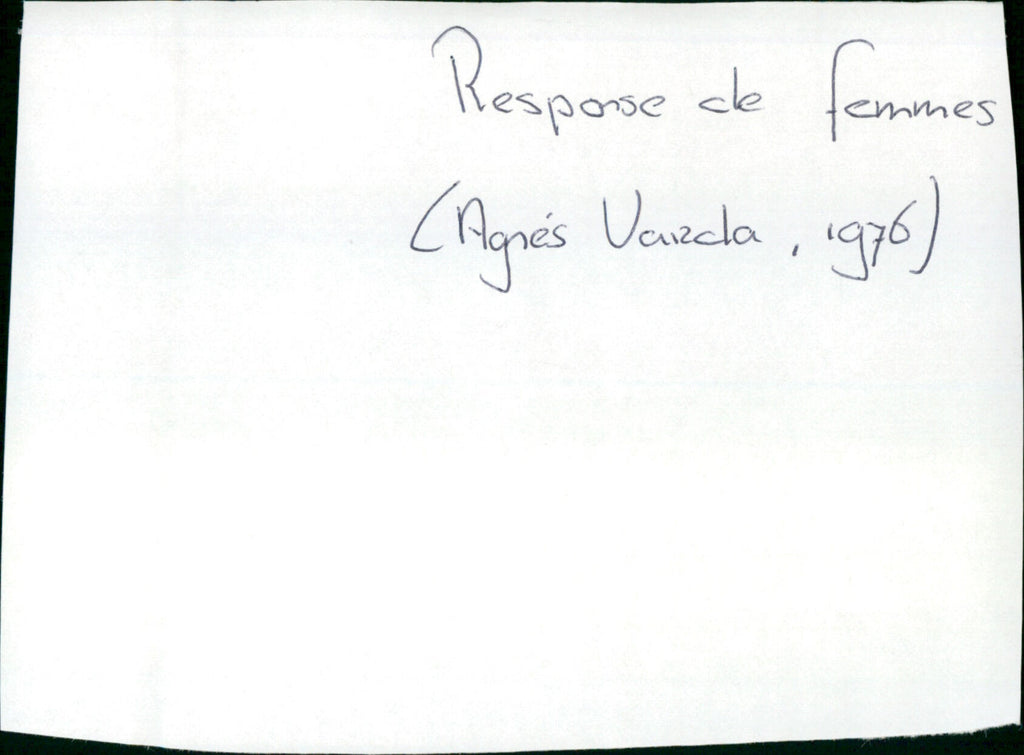 Response de femmes
(Agnés Varda, 1976)